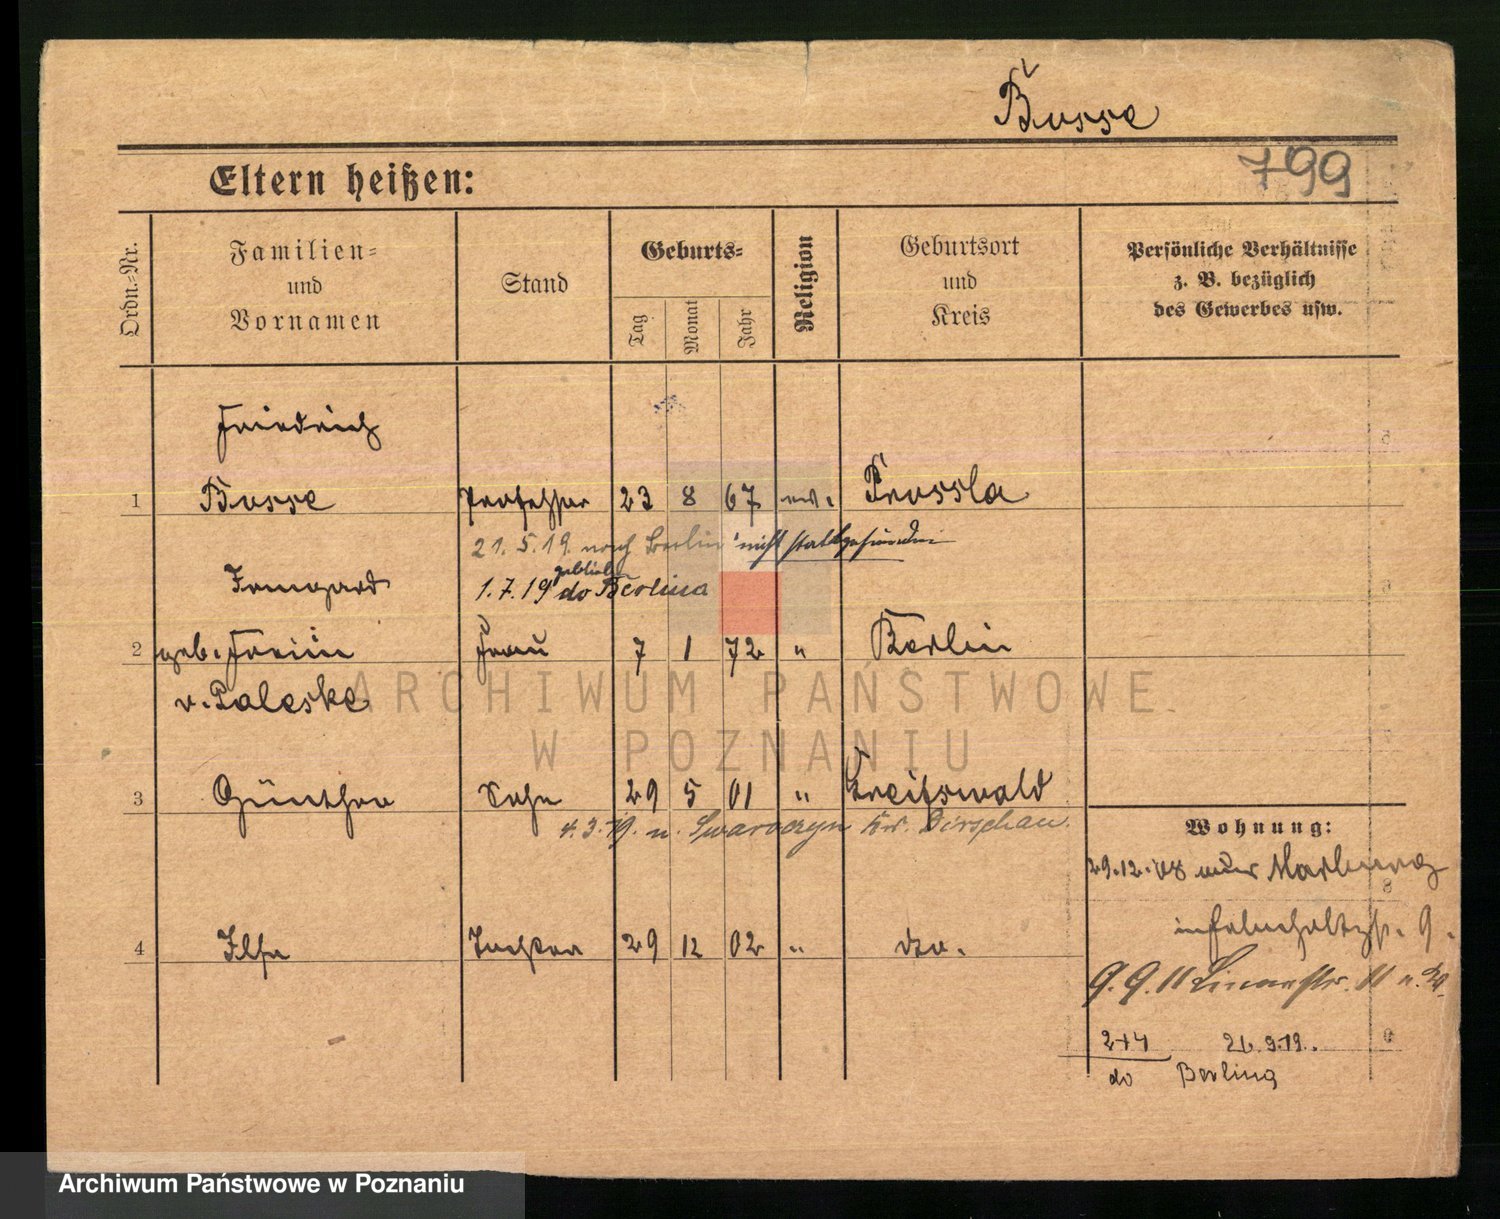 Busse
799
Eltern heißen:
Ordn.-Nr.
Familien-
und
Vornamen
Stand
Geburts-
Tag
Monat
Jahr
Religion
Geburtsort
und
Kreis
Persönliche Verhältnisse
z. B. bezüglich
des Gewerbes usw.
Friedrich
1 Busse Professor 23 8 67
21. 5. 19. nach Berlin nicht stattgefunden
Irmgard
1. 7. 19 do Berlina
2 geb. Freiin Frau 7 1 72 " Berlin
v. Paleske
3 Günther Sohn 29 5 01 " Greifswald
4. 3. 19. n. Swaroczyn Kr. Dirschau.
Wohnung:
29. 12. 08 Marburg
9.
4 Ilse Tochter 29 12 02 " dto.
9. 9. 11 11
2+4 21. 9. 19.
do Berlina
ARCHIWUM PAŃSTWOWE
W POZNANIU
Archiwum Państwowe w Poznaniu